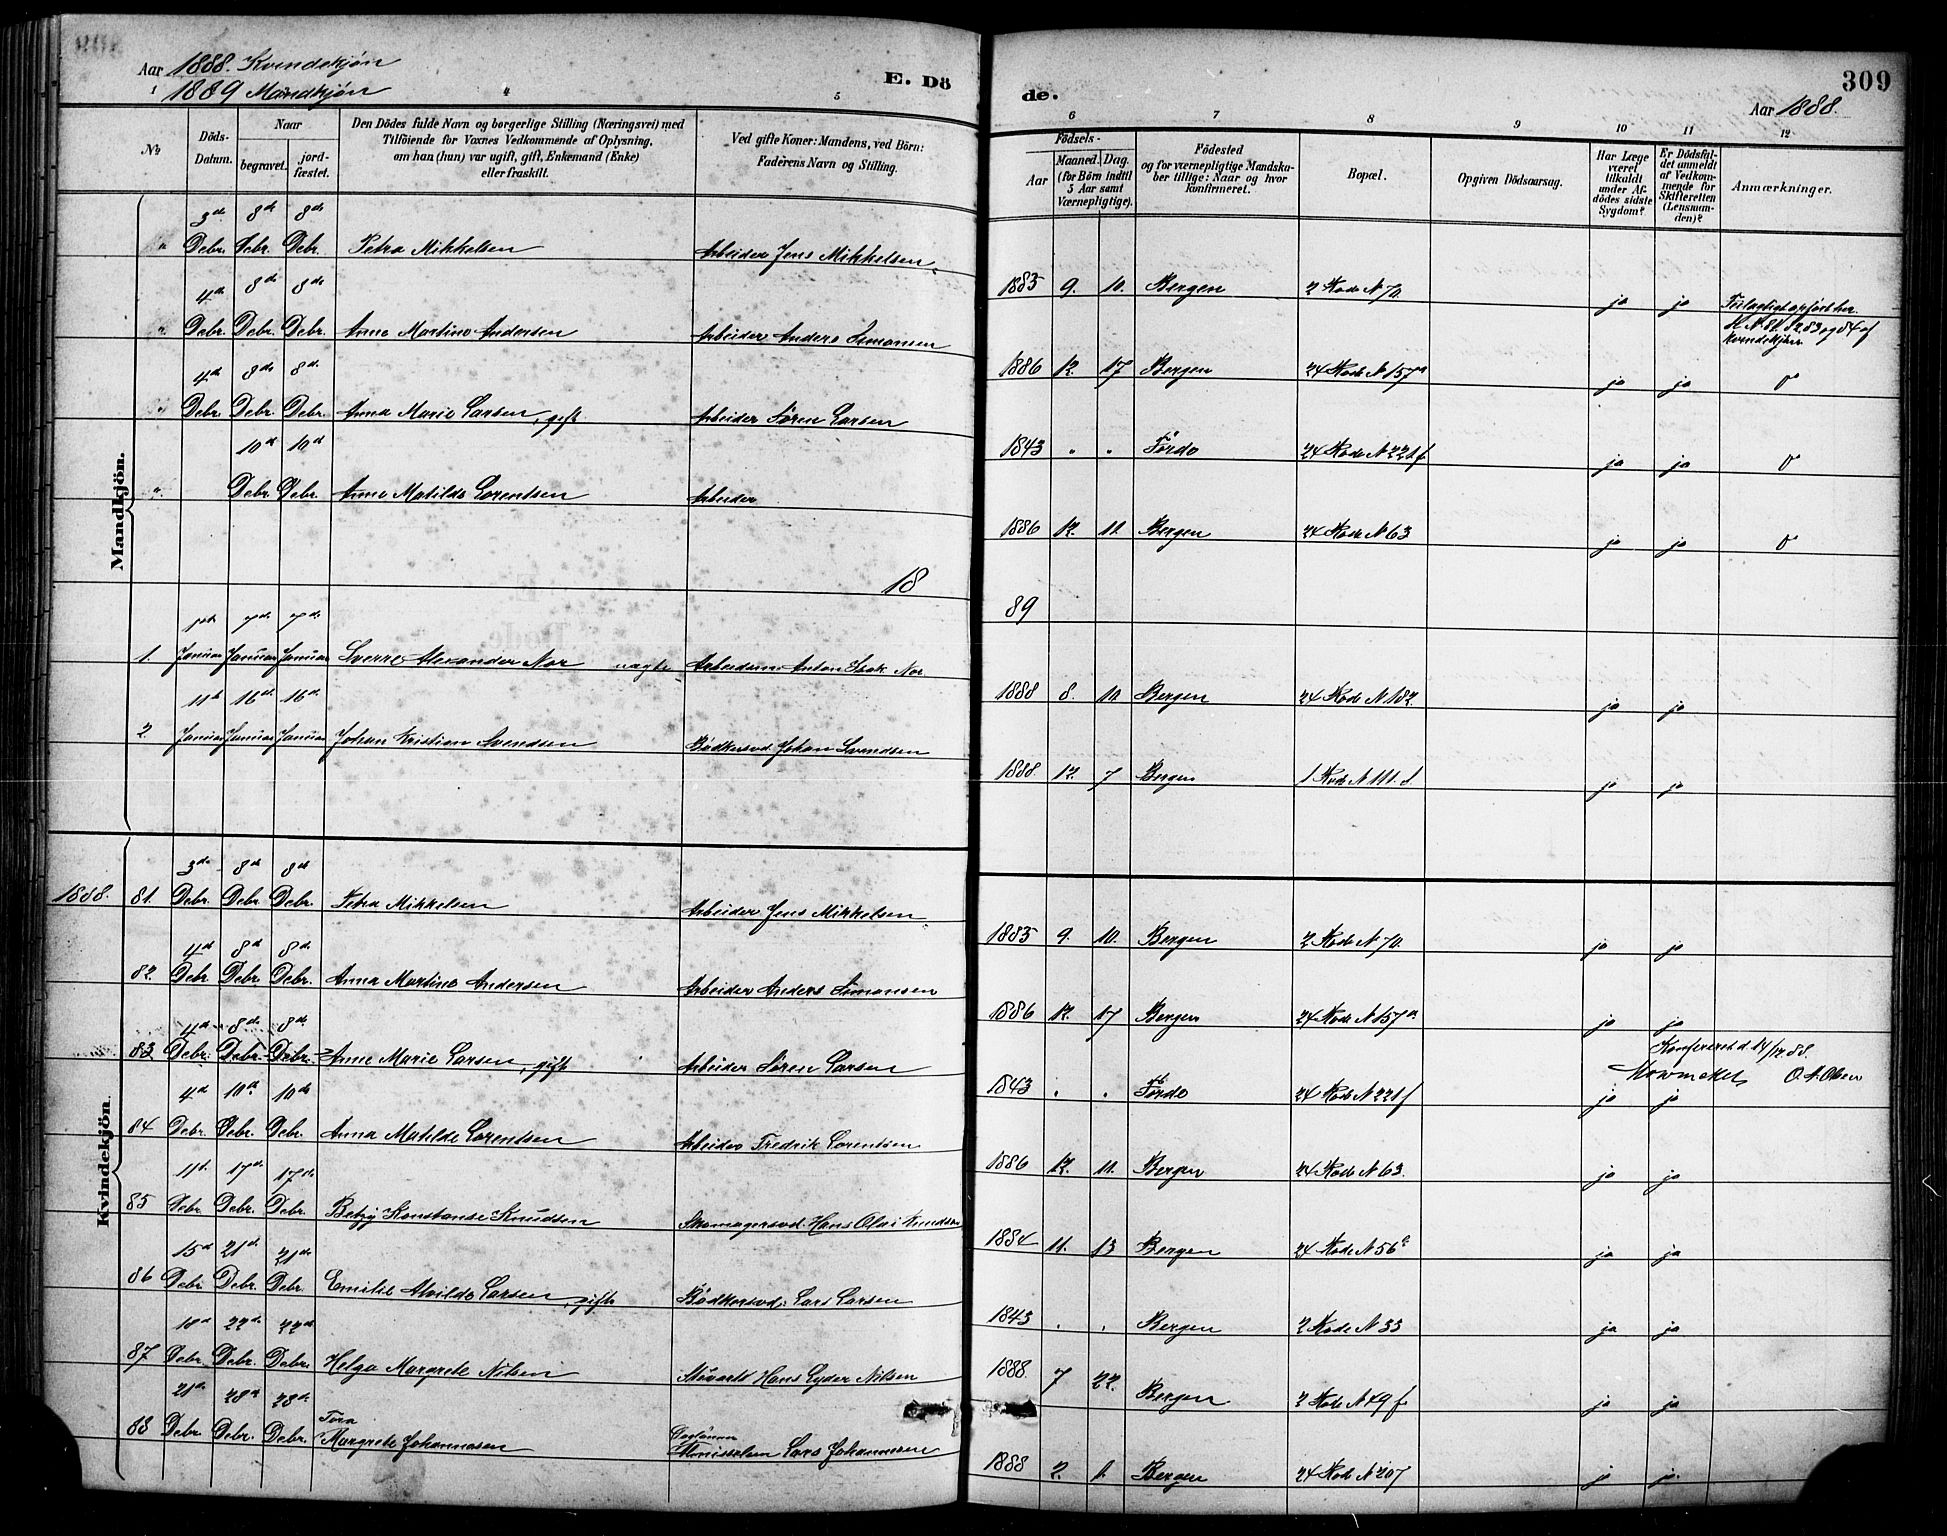 Aar 1888. Kvindekjön
1889 Mandkjön
E. Dö
de.
309
Aar 1888.
1 4 5 6 7 8 9 10 11 12
No
Döds-Datum.
Naar
begravet.
jordfæstet.
Den Dödes fulde Navn og borgerlige Stilling (Næringsvei) med
Tilföiende for Voxnes Vedkommende af Oplysning,
om han (hun) var ugift, gift, Enkemand (Enke)
eller fraskilt.
Ved gifte Koner: Mandens, ved Börn:
Faderens Navn og Stilling.
Födsels-
Aar
Maaned. Dag.
(for Börn indtil
5 Aar samt
Værnepligtige).
Födested
og for værnepligtige Mandska-
ber tillige: Naar og hvor
konfirmeret.
Bopæl.
Opgiven Dödsaarsag.
Har Læge
været
tilkaldt
under Af-
dödes sidste
Sygdom?
Er Dödsfal-
det anmeldt
af Vedkom-
mende for
Skifteretten
(Lensman-
den)?
Anmærkninger.
Mandkjön.
" 3de Debr. 8de Debr. 8de Debr. Petra Mikkelsen Arbeider Jens Mikkelsen 1885 9. 10. Bergen 2 Rode N 70 ja ja
" 4de Debr. 8de Debr. 8de Debr. Anna Martine Andersen Arbeider Anders Simonsen 1886 12. 17 Bergen 24 Rode N 157a ja ja
" 4de Debr. 8de Debr. 8de Debr. Anna Marie Larsen, gift Arbeider Sören Larsen 1843 " " Förde 24 Rode N 221f ja ja
" 10de Debr. 10de Debr. Anna Matilde Lorentsen Arbeider 1886 12. 11. Bergen 24 Rode N 63 ja ja
18 89
1. Januar 7de Januar 7de Januar Sverre Alexander Nor uægte Anton Isak Nor. 1888 8. 10. Bergen 24 Rode N 182 ja ja
2. 11te Januar 16de Januar 16de Januar Johan Kristian Svendsen Bödkersvd. Johan Svendsen 1888. 12. 7 Bergen 1 Rode N 111.d ja ja
Kvindekjön.
1888. 81. 3de Debr. 8de Debr. 8de Debr. Petra Mikkelsen Arbeider Jens Mikkelsen 1885 9. 10. Bergen 2 Rode N 70 ja ja
82. 4de Debr. 8de Debr. 8de Debr. Anna Martine Andersen Arbeider Anders Simonsen 1886 12. 17 Bergen 24 Rode N 157a ja ja
Konfereret d. 14/12 88.
O. A. Olsen
83 4de Debr. 8de Debr. 8de Debr. Anna Marie Larsen, gift Arbeider Sören Larsen 1843 " " Förde 24 Rode N 221f ja ja
84 4de Debr. 10de Debr. 10de Debr. Anna Matilde Lorentsen Arbeider Fredrik Lorentsen 1886 12. 11. Bergen 24 Rode N 63. ja ja
85 11te Debr. 17de Debr. 17de Debr. Betzy Konstanse Knudsen Skomagersvd. Hans Olai Knudsen 1884 11. 13 Bergen 24 Rode N 56 ja ja
86 15de Debr. 21de Debr. 21de Debr. Emilie Alvilde Larsen, gift Bödkersvd. Lars Larsen 1843 " " Bergen 2 Rode N 33 ja ja
87 Debr. 22de Debr. 22de Debr. Helga Margrete Nilsen Stuvart Hans Lyder Nilsen 1888. 7 22. Bergen 2 Rode N 49 f ja ja
88 21de Debr. 28de Debr. 28de Debr. Tora Margrete Johannesen Lars Johannesen 1888 2. 1. Bergen 24 Rode N 207 ja ja.